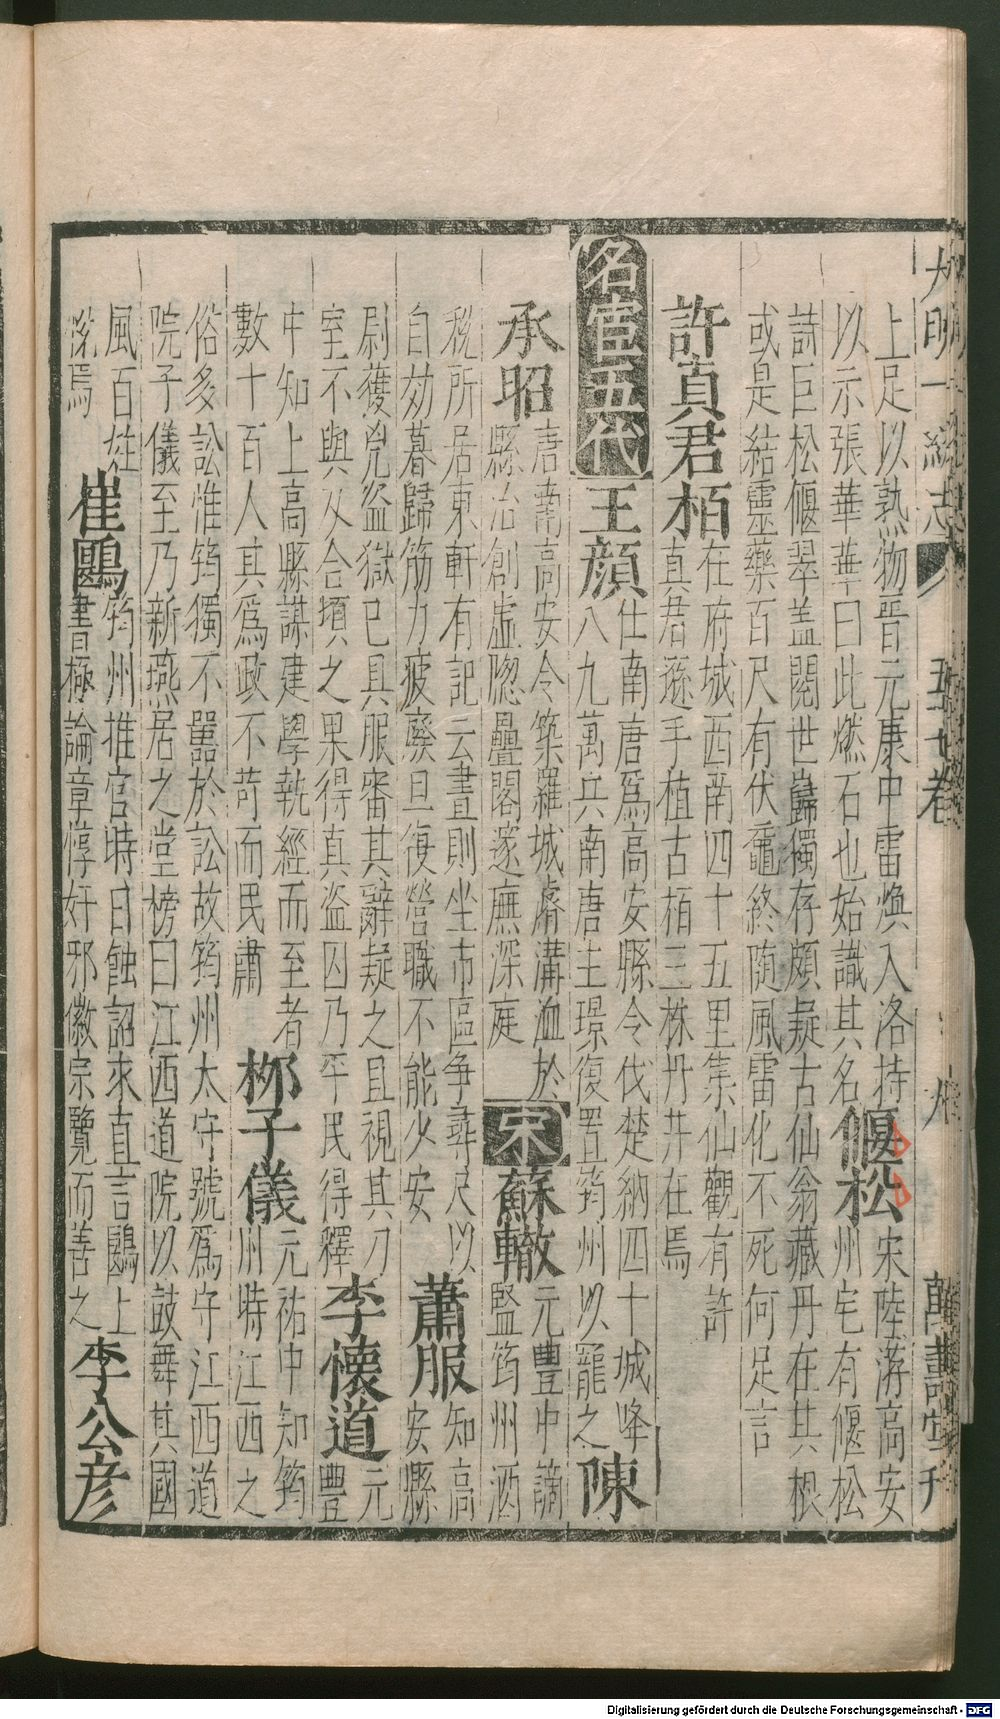 大明一統志 五十七卷 九 萬壽堂刋
上足以熟物晋元康中雷煥入洛持
以示張華華曰此燃石也始識其名
偃松
宋陸游高安
州宅有偃松
詩巨松偃翠盖閱世巋獨存頗疑古仙翁藏丹在其根
或是結靈藥百尺有伏龜終随風雷化不死何足言
許真君栢
在府城西南四十五里集仙觀有許
真君遜手植古栢三株丹井在焉
名宦五代
王顔
仕南唐爲高安縣令伐楚納四十城降
八九萬兵南唐主璟復置筠州以寵之
陳
承昭
唐南高安令築羅城濬溝洫於
縣治創虛窓疊閣邃廡深庭
宋
蘇轍
元豐中謫
監筠州酒
税所居東軒有記云晝則坐市區争尋尺以
自効暮歸筋力疲廢旦復營職不能少安
蕭服
知高
安縣
尉獲兇盗獄已具服審其辭疑之且視其刀
室不與刄合頃之果得真盗囚乃平民得釋
李懷道
元
豐
中知上高縣謀建學執經而至者
數十百人其爲政不苛而民肅
柳子儀
元祐中知筠
州時江西之
俗多訟惟筠獨不嚚於訟故筠州太守號爲守江西道
院子儀至乃新燕居之堂榜曰江西道院以鼓舞其國
風百姓
焉
崔鶠
筠州推官時日蝕詔求直言鶠上
書極論章惇奸邪徽宗覽而善之
李公彦
Digitalisierung gefördert durch die Deutsche Forschungsgemeinschaft - DFG